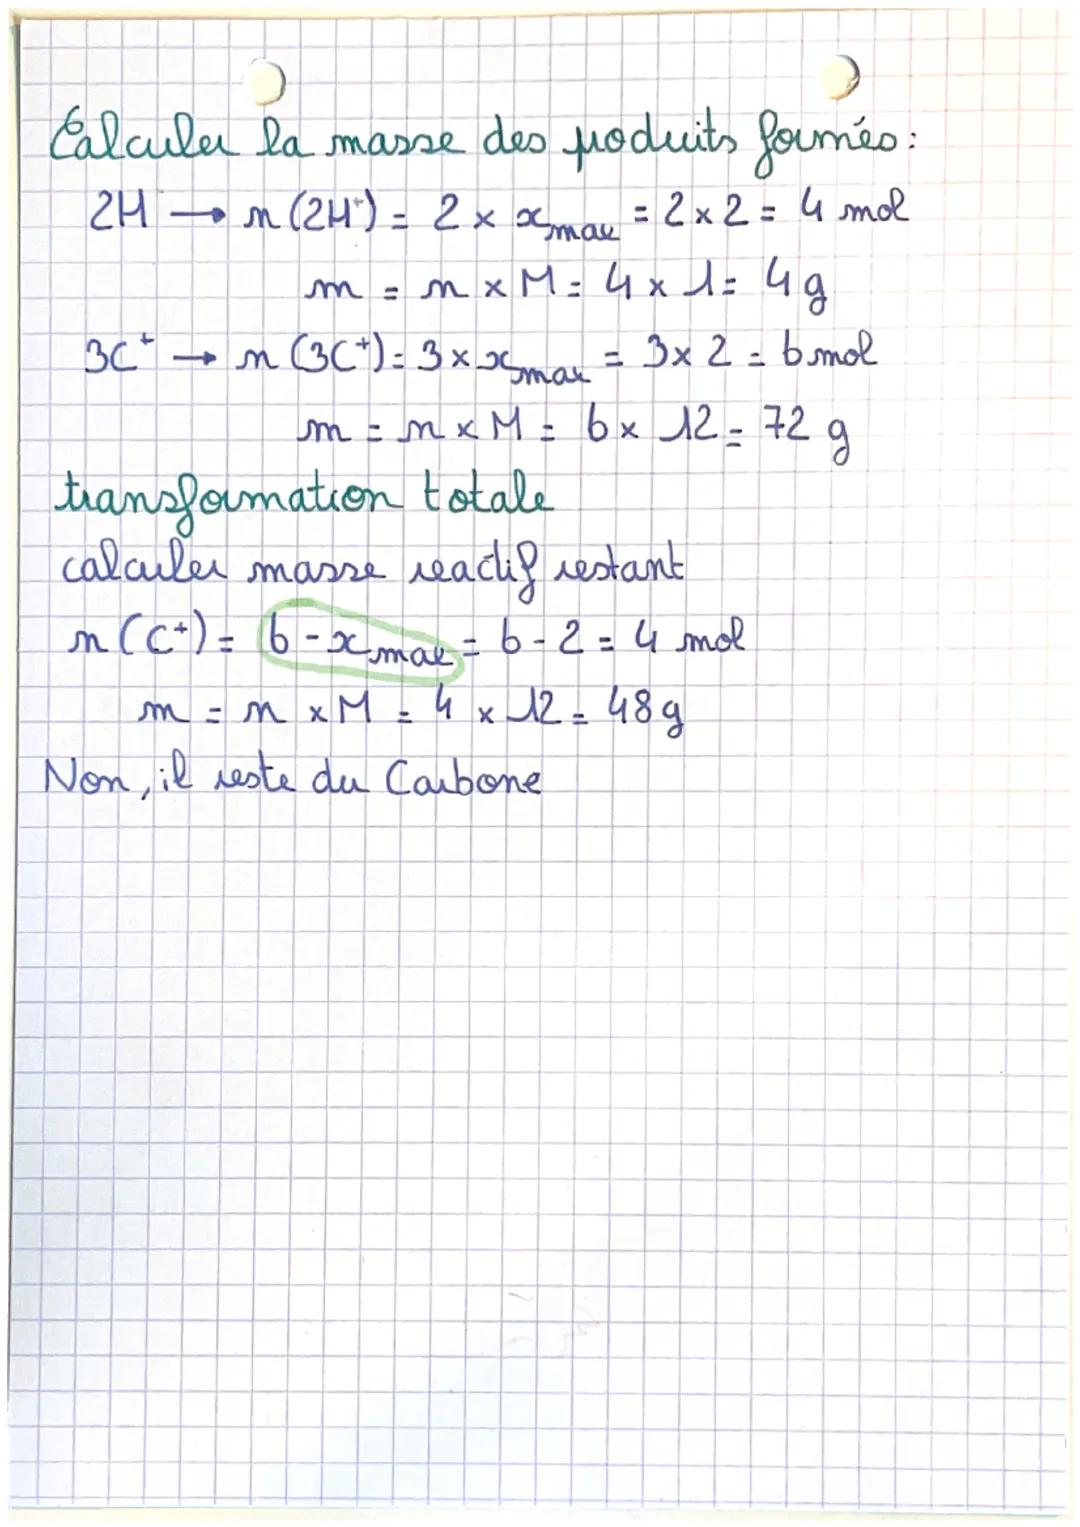 Calculer la masse des produits formés :
2H → n (2H⁺) = 2 × xmax = 2 × 2 = 4 mol
m = n × M = 4 × 1 = 4 g
3C⁺ → n (3C⁺) = 3 × xmax = 3 × 2 = 6 mol
m = n × M = 6 × 12 = 72 g
transformation totale
calculer masse reactif restant
n (C⁺) = 6 - xmax = 6 - 2 = 4 mol
m = n × M = 4 × 12 = 48 g
Non, il reste du Carbone